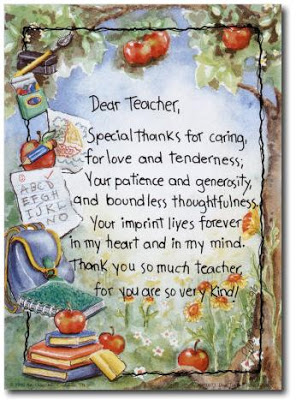 Dear Teacher,
Special thanks for caring,
for love and tenderness;
Your patience and generosity,
and boundless thoughtfulness.
Your imprint lives forever
in my heart and in my mind.
Thank you so much teacher,
for you are so very kind!
A B C D
E F G H
I J K L
N O